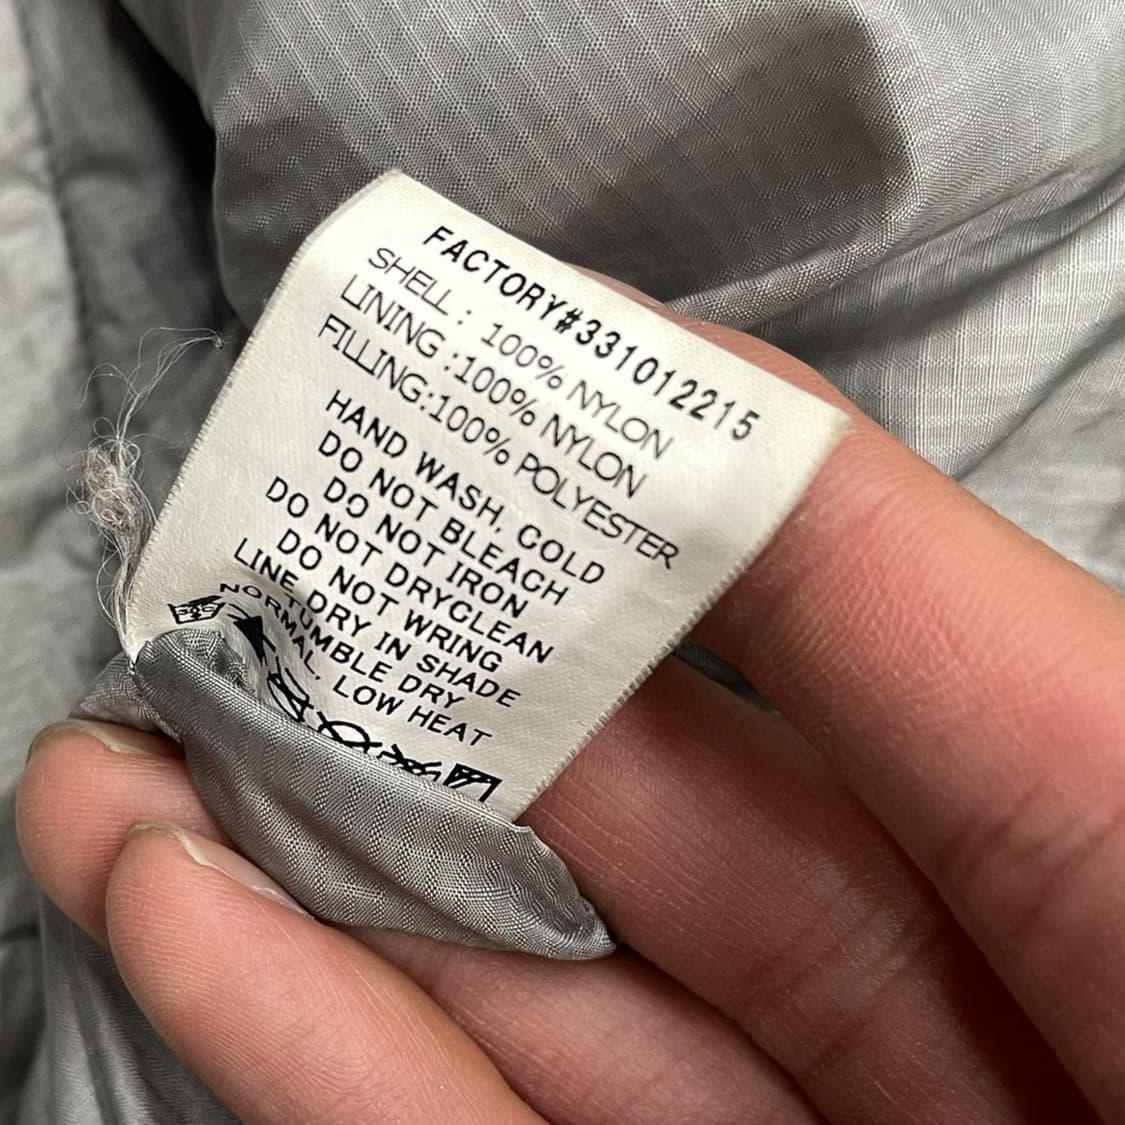 FACTORY#331012215
SHELL : 100% NYLON
LINING :100% NYLON
FILLING:100% POLYESTER
HAND WASH, COLD
DO NOT BLEACH
DO NOT IRON
DO NOT DRYCLEAN
DO NOT WRING
LINE DRY IN SHADE
TUMBLE DRY
NORMAL, LOW HEAT